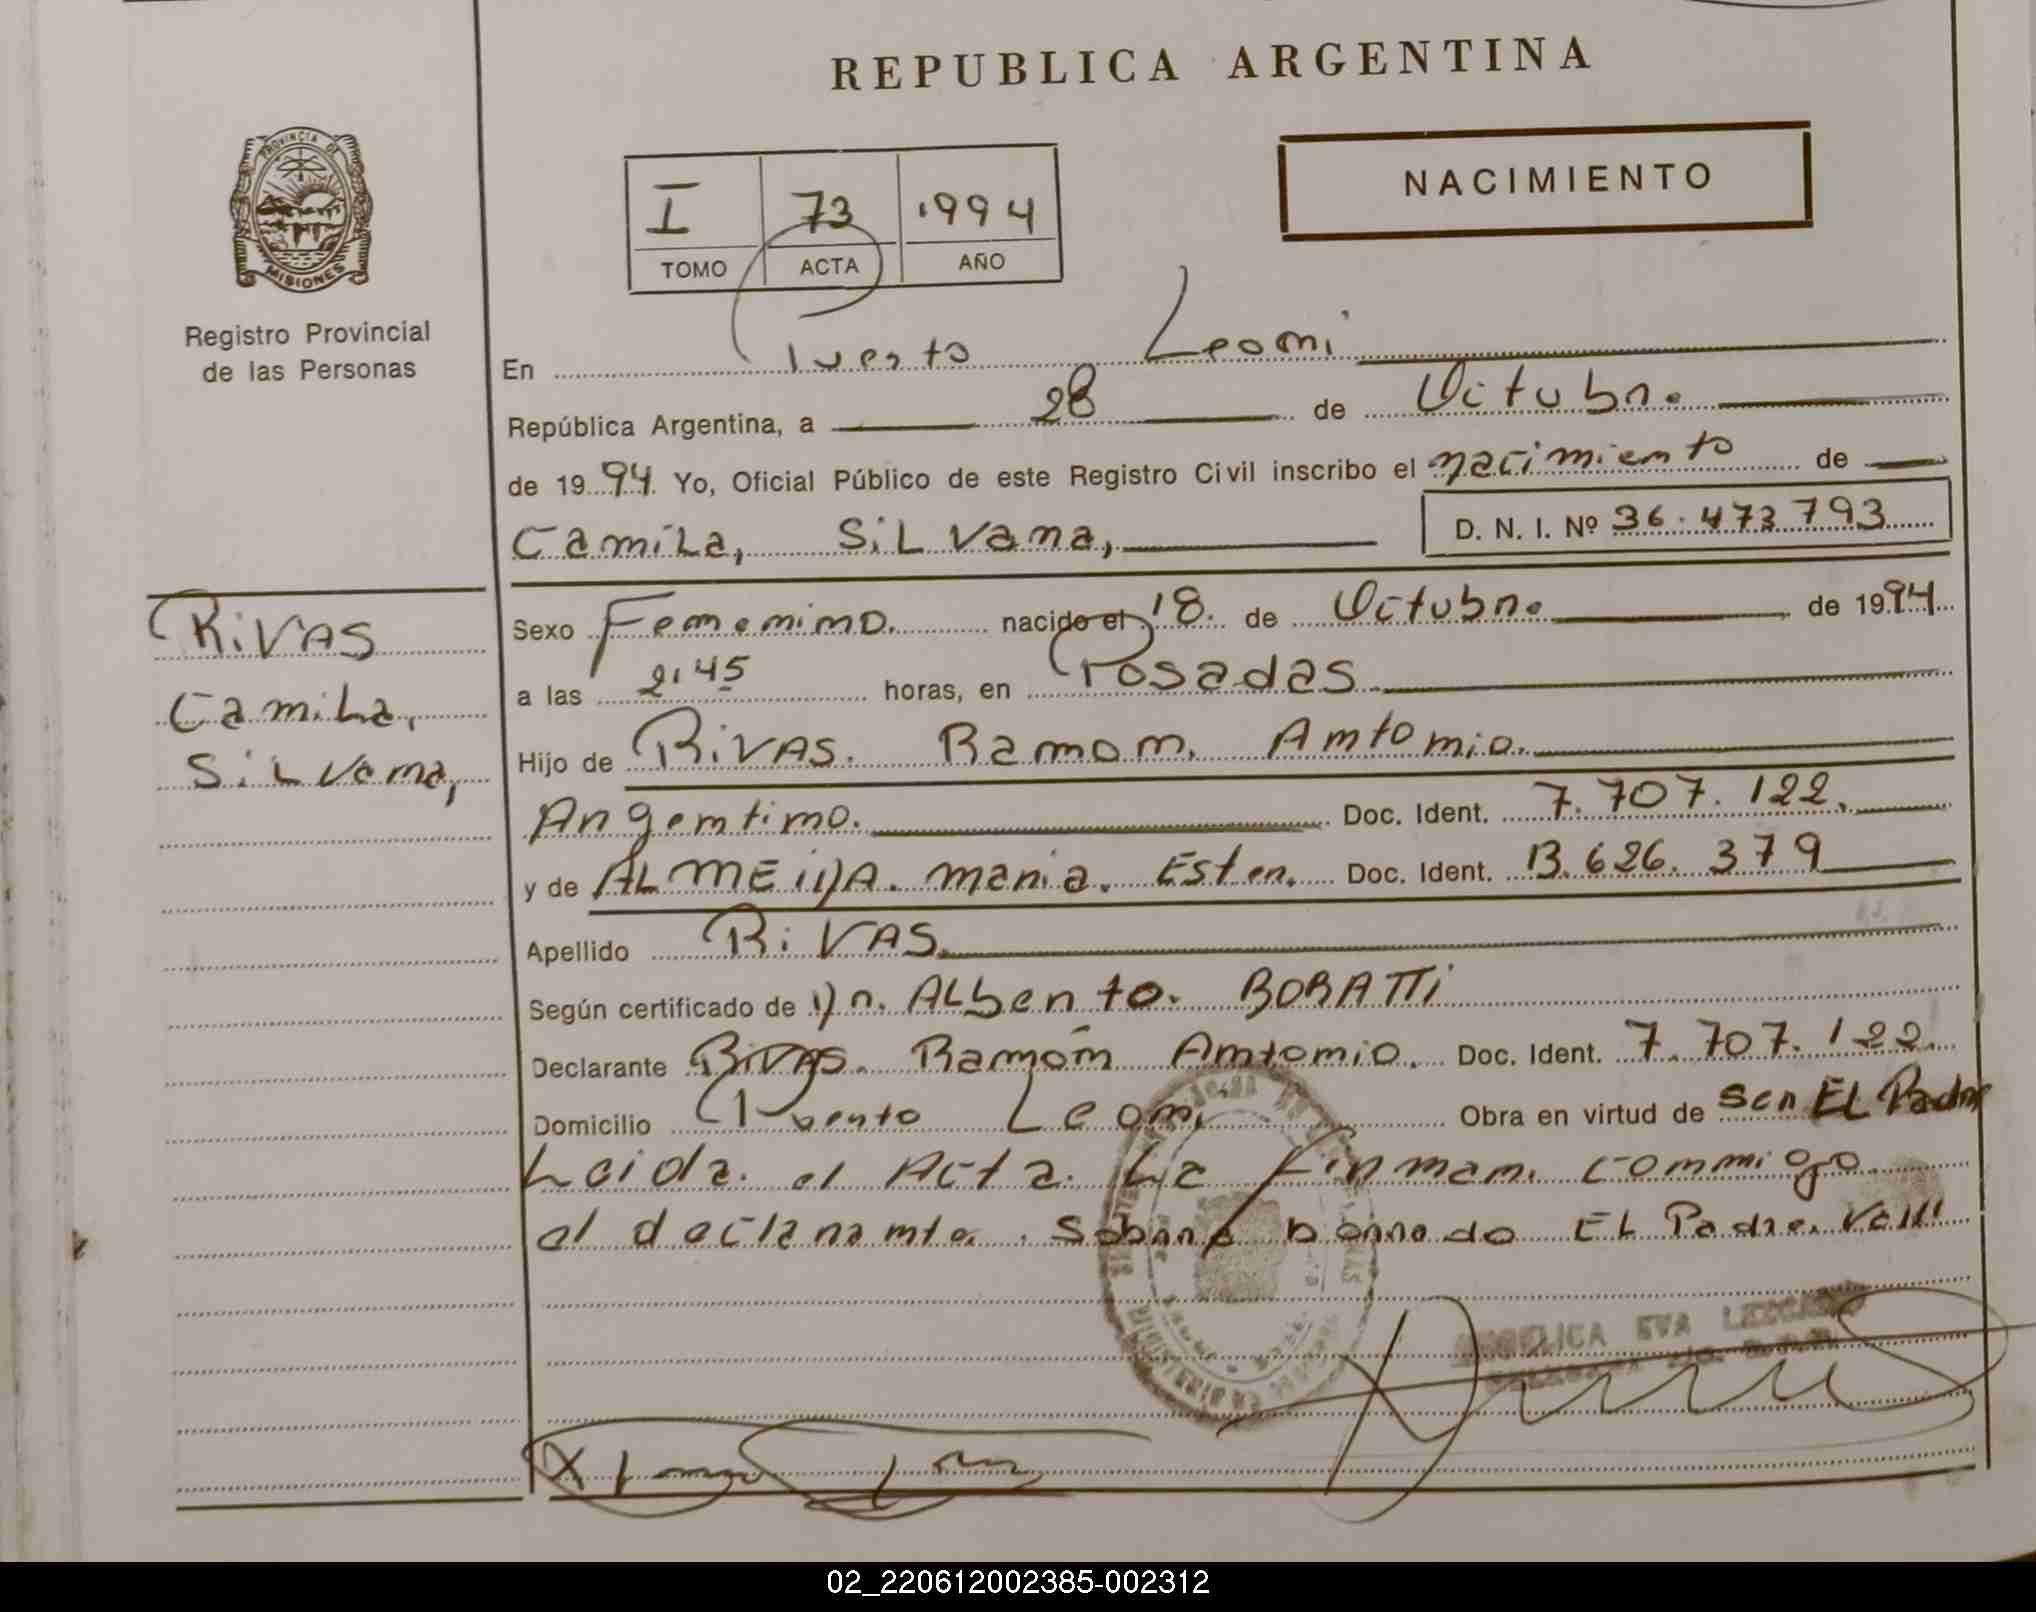 REPUBLICA ARGENTINA
PROVINCIA DE MISIONES
Registro Provincial
de las Personas
NACIMIENTO
I 73 1994
TOMO ACTA AÑO
En Puerto Leoni
República Argentina, a 28 de Octubre
de 1994 Yo, Oficial Público de este Registro Civil inscribo el nacimiento de
Camila, Silvana, D. N. I. Nº 36.473793
RIVAS
Camila,
Silvana,
Sexo Femenino. nacido el 18. de Octubre de 1994
a las 2,45 horas, en Posadas
Hijo de RIVAS. Ramon. Antonio.
Argentino. Doc. Ident. 7.707.122.
y de ALMEIDA. Maria. Ester. Doc. Ident. 13.626.379
Apellido RIVAS
Según certificado de Dr. Alberto. BORATTI
Declarante RIVAS. Ramón Antonio. Doc. Ident. 7.707.122.
Domicilio Puerto Leoni Obra en virtud de ser EL Padre
Leida. el Acta. La Firman. conmigo.
el declarante. Sobre borrado EL Padre. Vale
ANGELICA EVA
02_220612002385-002312